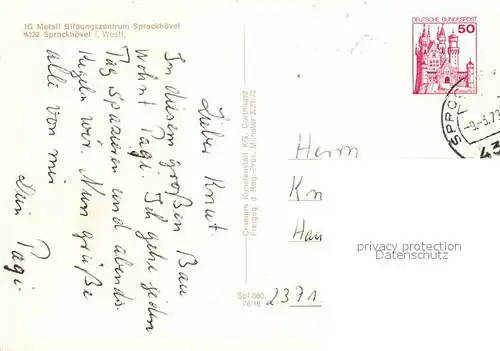 IG Metall Bildungszentrum Sprockhövel
4322 Sprockhövel i. Westf.
Lieber Knut.
In diesem großen Bau
wohnt Papi. Ich gehe jeden
Tag spazieren und abends
Kegeln wir. Nun grüße
alle von mir
Dein Papi.
Cramers Kunstanstalt KG, Dortmund
Freigeg. d. Reg.-Präs. Münster 3721/72
Spl 080
78/10
2371
DEUTSCHE BUNDESPOST
50
SPRO
-9.-5.79
43
Herrn
Kn
Han
privacy protection
Datenschutz